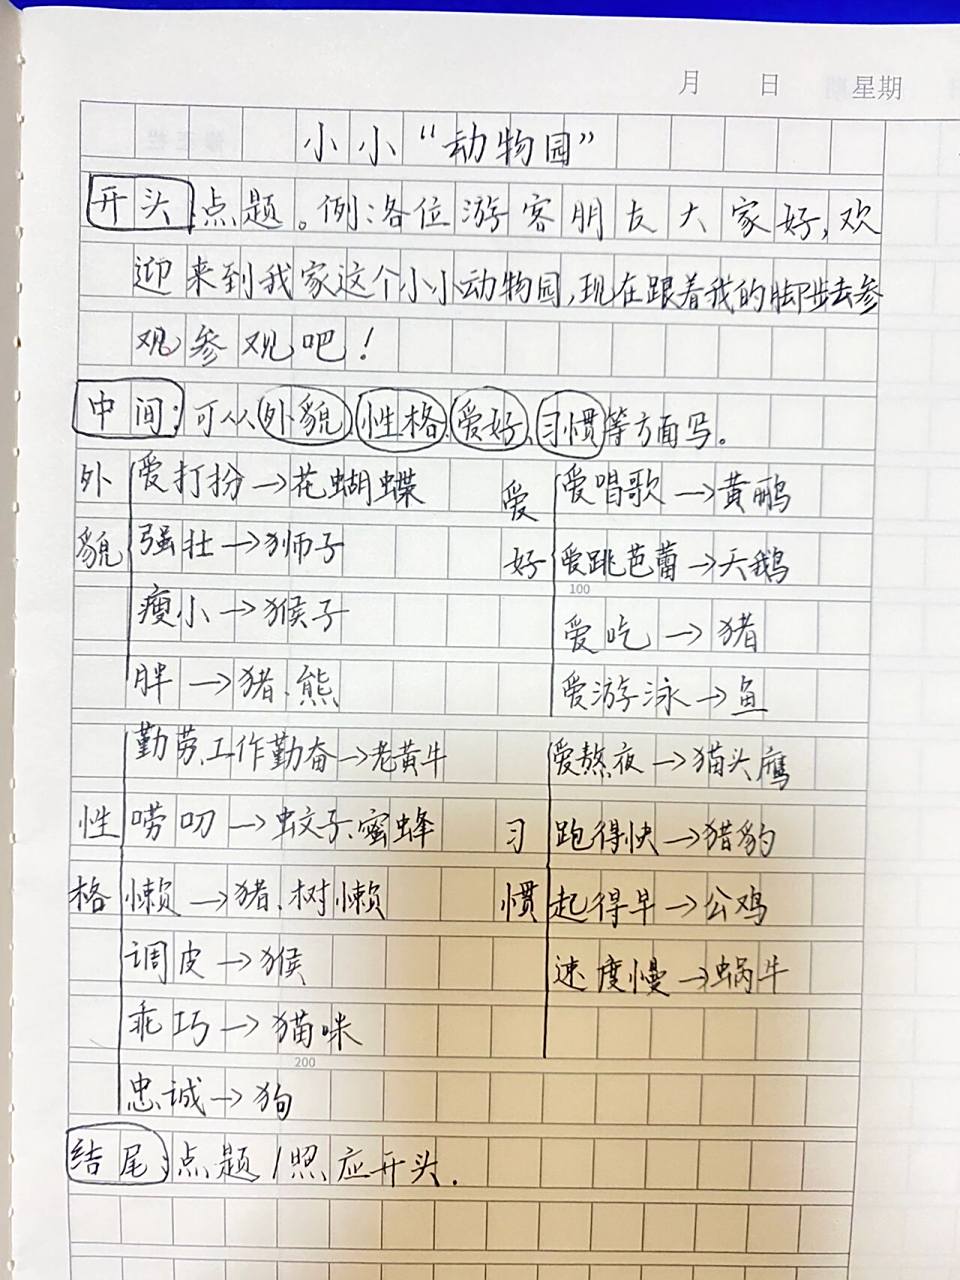 月 日 星期
小小“动物园”
开头 点题。例:各位游客朋友大家好,欢
迎来到我家这个小小动物园,现在跟着我的脚步去参
观参观吧!
中间:可从外貌、性格、爱好、习惯等方面写。
外貌
爱打扮→花蝴蝶
强壮→狮子
瘦小→猴子
胖→猪、熊
爱好
爱唱歌→黄鹂
爱跳芭蕾→天鹅
100
爱吃→猪
爱游泳→鱼
性格
勤劳、工作勤奋→老黄牛
唠叨→蚊子、蜜蜂
懒→猪、树懒
调皮→猴
乖巧→猫咪
200
忠诚→狗
习惯
爱熬夜→猫头鹰
跑得快→猎豹
起得早→公鸡
速度慢→蜗牛
结尾:点题/照应开头.